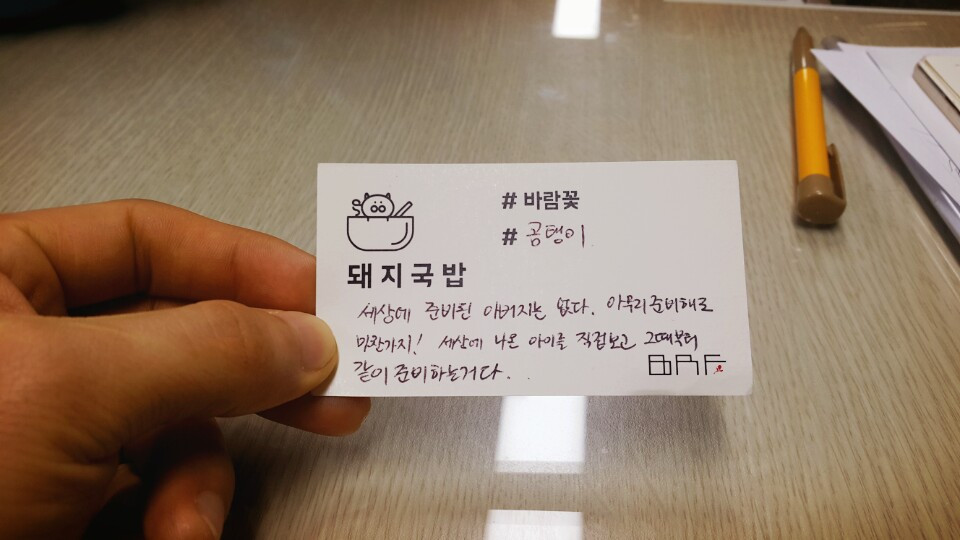 # 바람꽃
# 곰탱이
돼지국밥
세상에 준비된 아버지는 없다. 아무리 준비해도
마찬가지! 세상에 나온 아이를 직접보고 그때부터
같이 준비하는거다.